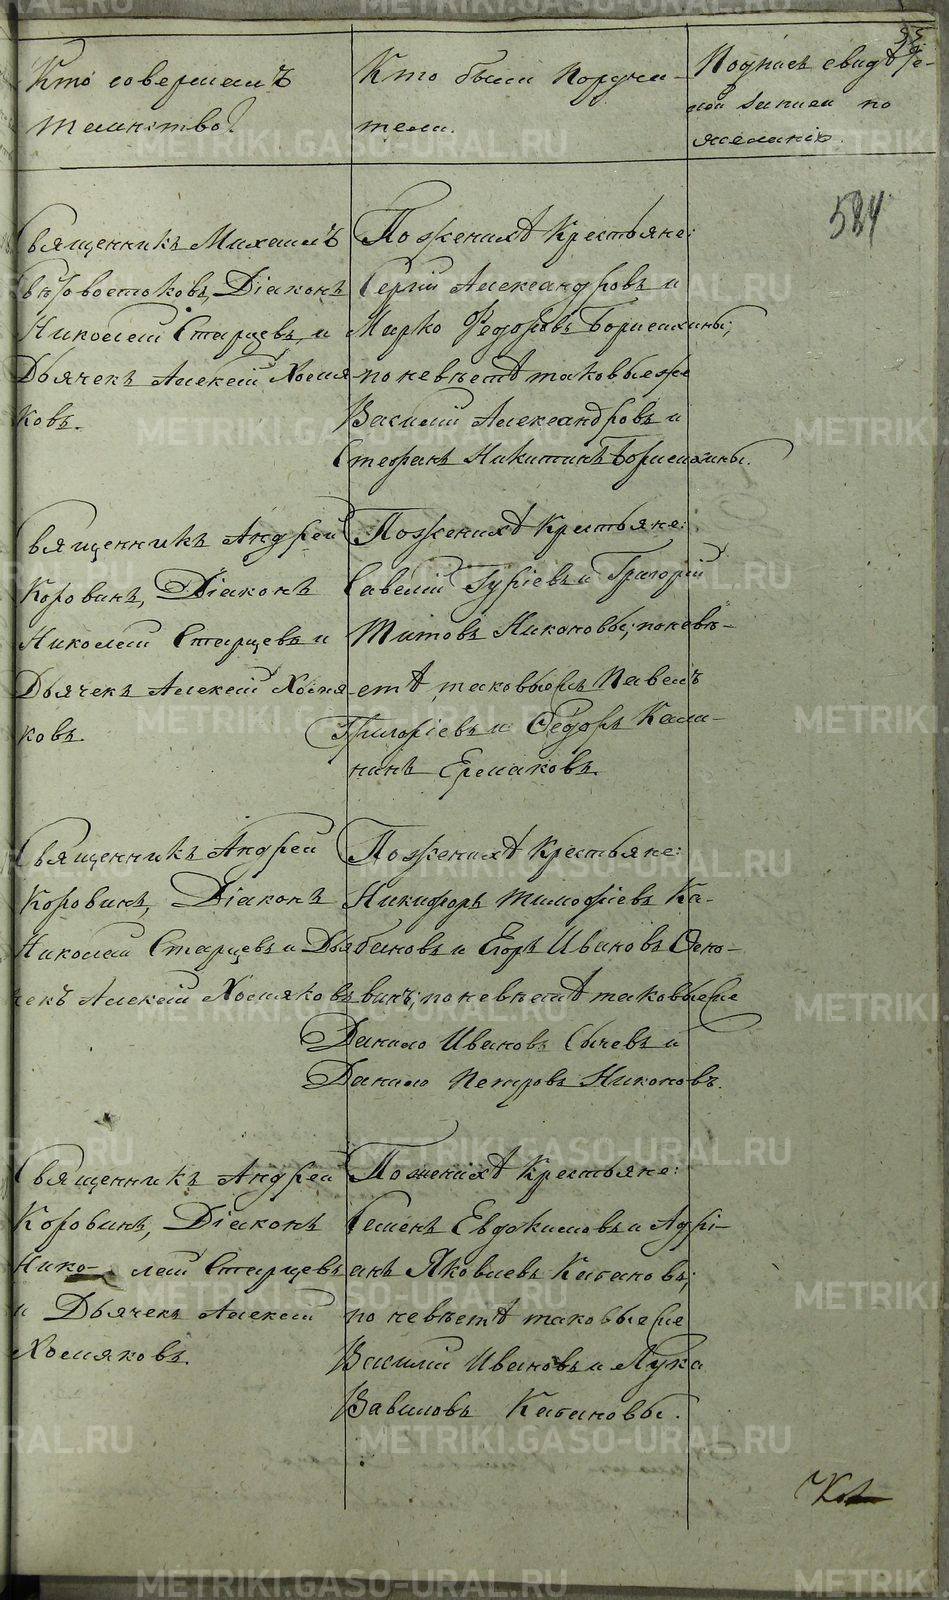 Кто совершалъ
таинство?
Кто были поручи-
тели.
Подпись свидѣте-
лей записи по
желанію.
584
Священникъ Михаилъ
Свѣтовостоковъ, Діаконъ
Николай Старцевъ, и
Дьячекъ Алексей Хомя
ковъ.
По женихѣ Крестьяне:
Сергій Александровъ и
Марко Федоровъ Борисихины;
по невѣстѣ таковыеже
Василий Александровъ и
Стефанъ Никитинъ Борисихины.
Священникъ Андрей
Коровинъ, Діаконъ
Николай Старцевъ и
Дьячекъ Алексей Хомя
ковъ.
По женихѣ Крестьяне:
Савелій Гурьевъ и Григорій
Титовъ Никоновы; по невѣ-
стѣ таковыесь Павелъ
Григоріевъ и Федоръ Кали-
нинъ Ермаковъ.
Священникъ Андрей
Коровинъ, Діаконъ
Николай Старцевъ и Дья
чекъ Алексей Хомяковъ
По женихѣ Крестьяне:
Никифоръ Тимофіевъ Ка-
бановъ и Егоръ Ивановъ
винъ; по невѣстѣ таковыесе
Данило Ивановъ Сычевъ и
Данило Петровъ Никоновъ.
Священникъ Андрей
Коровинъ, Діаконъ
Нико- лай Старцевъ
и Дьячекъ Алексей
Хомяковъ.
По женихѣ Крестьяне:
Семенъ Евдокимовъ и Адрі-
анъ Яковлевъ Кабановъ;
по невѣстѣ таковыесе
Василій Ивановъ и Лука
Вавиловъ Кабановы.
METRIKI.GASO-URAL.RU